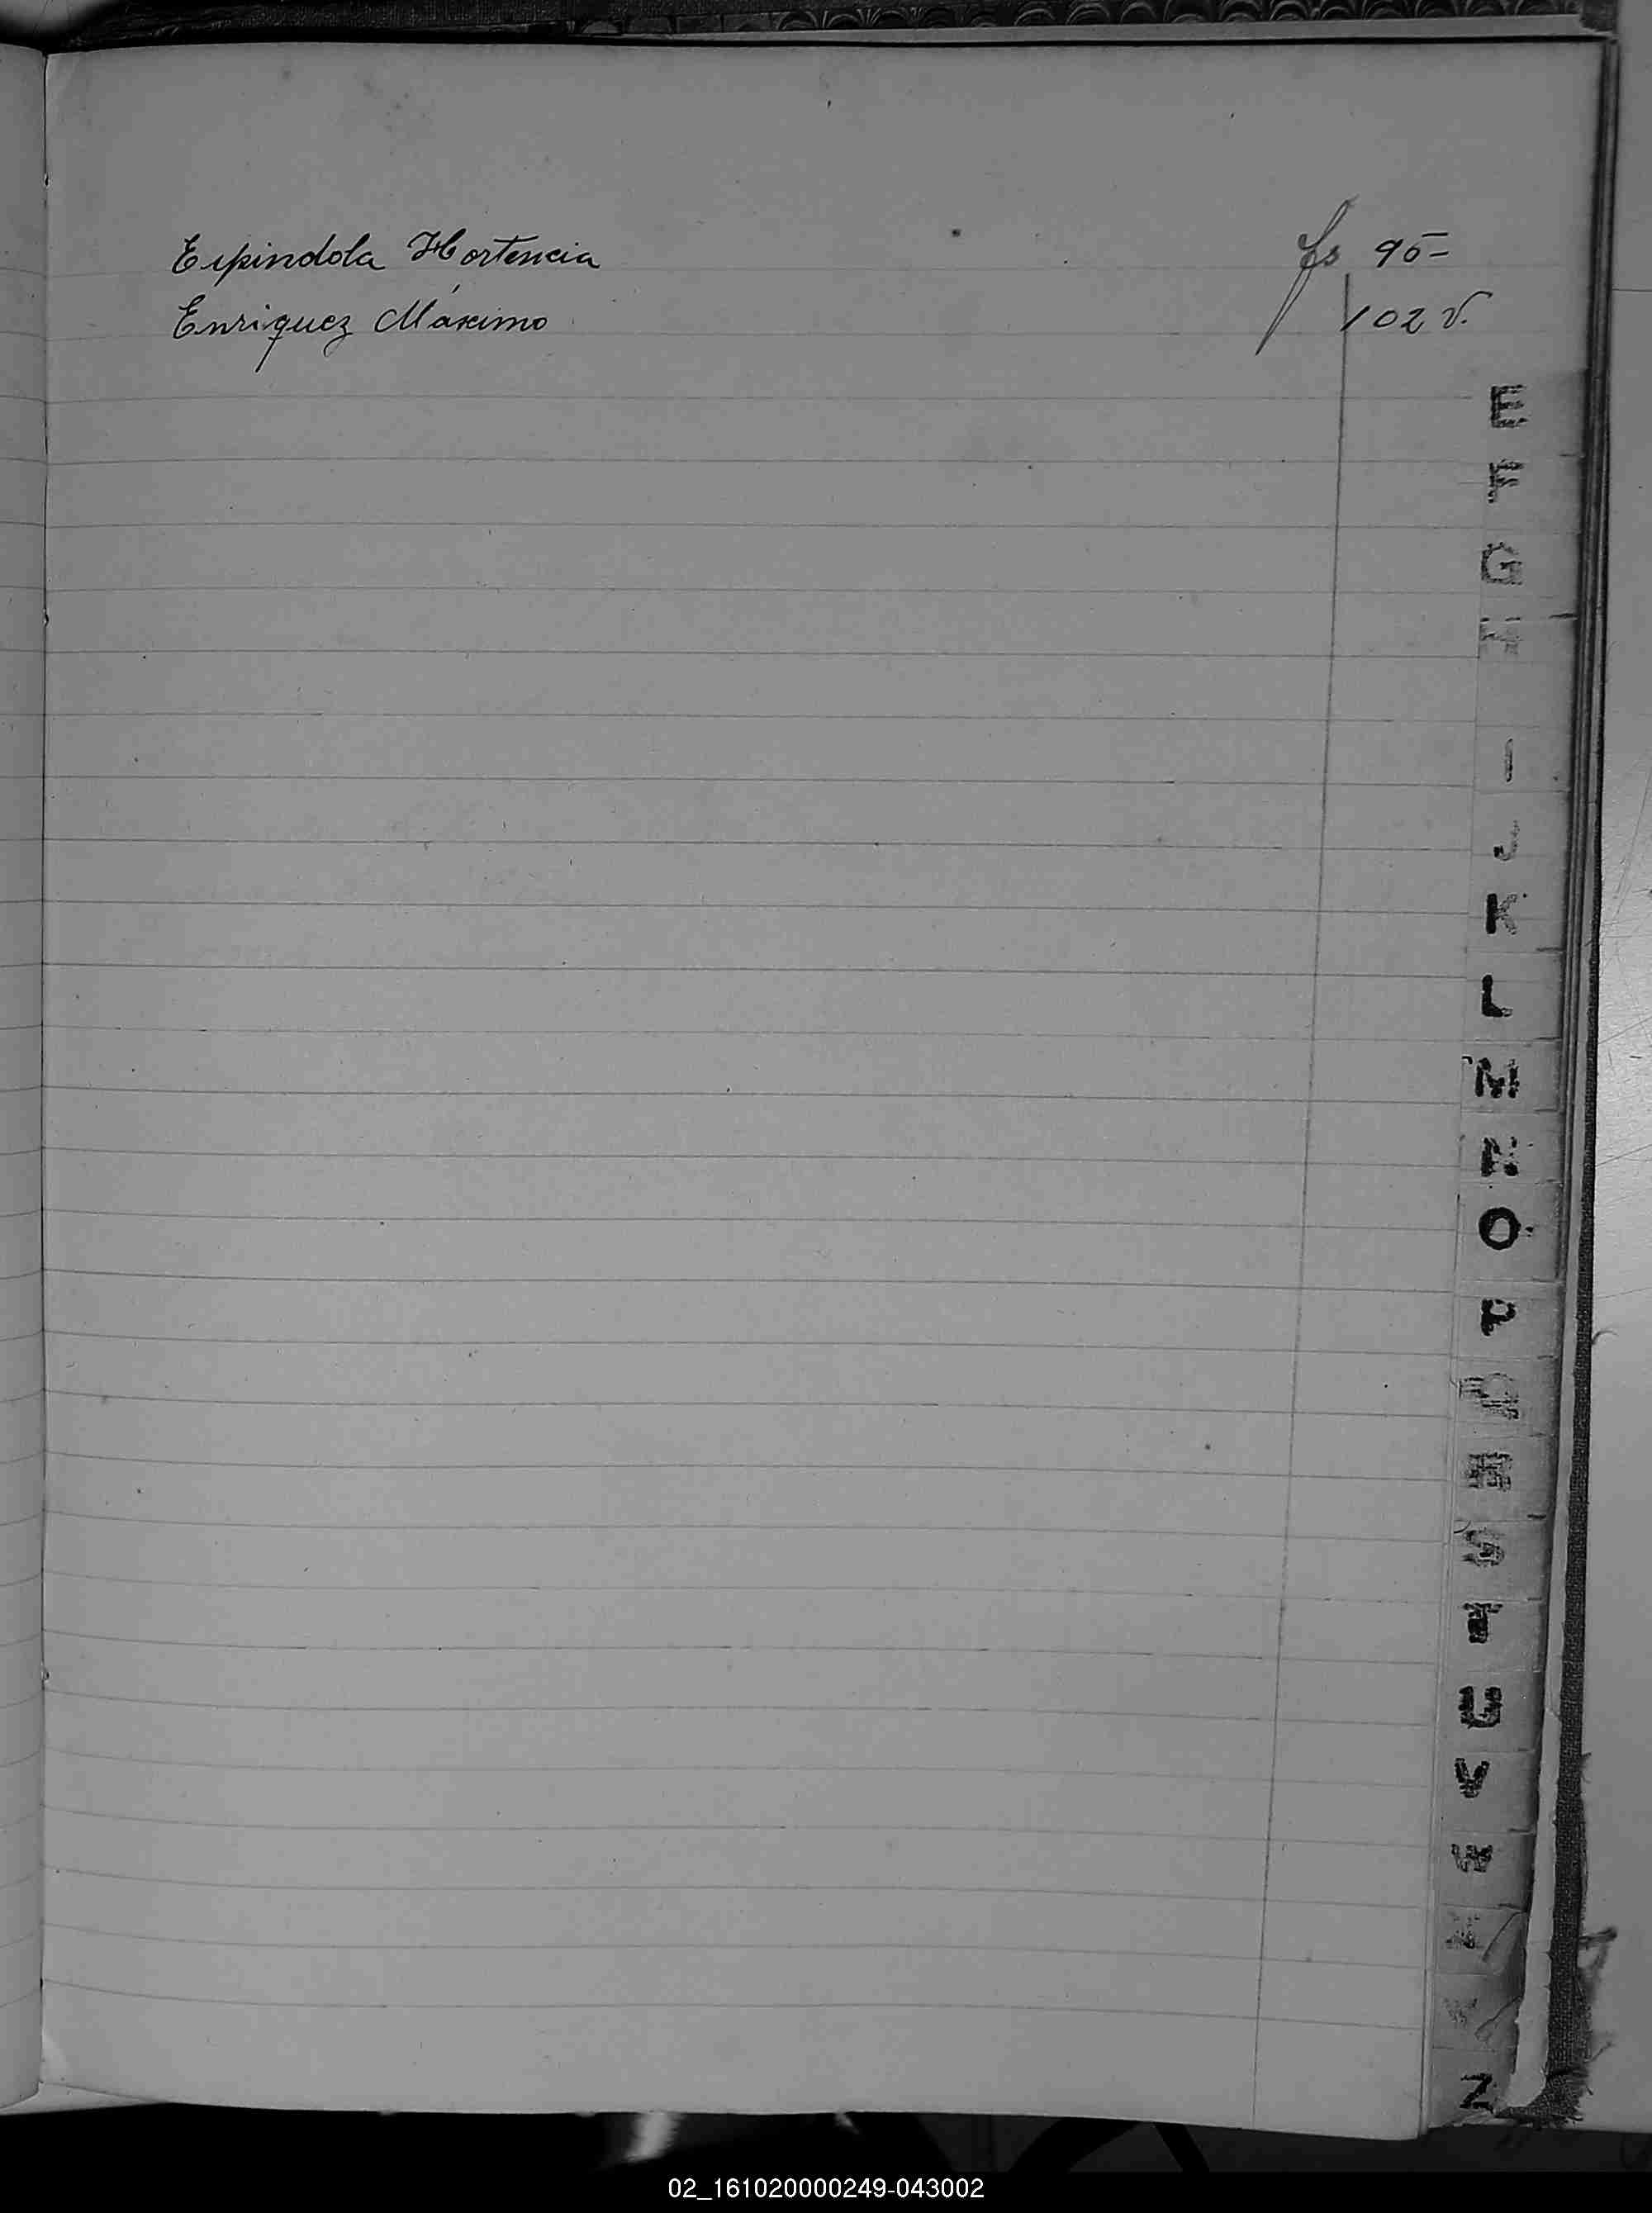 Espindola Hortencia fs 95-
Enriquez Máximo 102 v.
E
F
G
H
I
J
K
L
M
N
O
P
Q
R
S
T
U
V
W
X
Y
Z
02_161020000249-043002